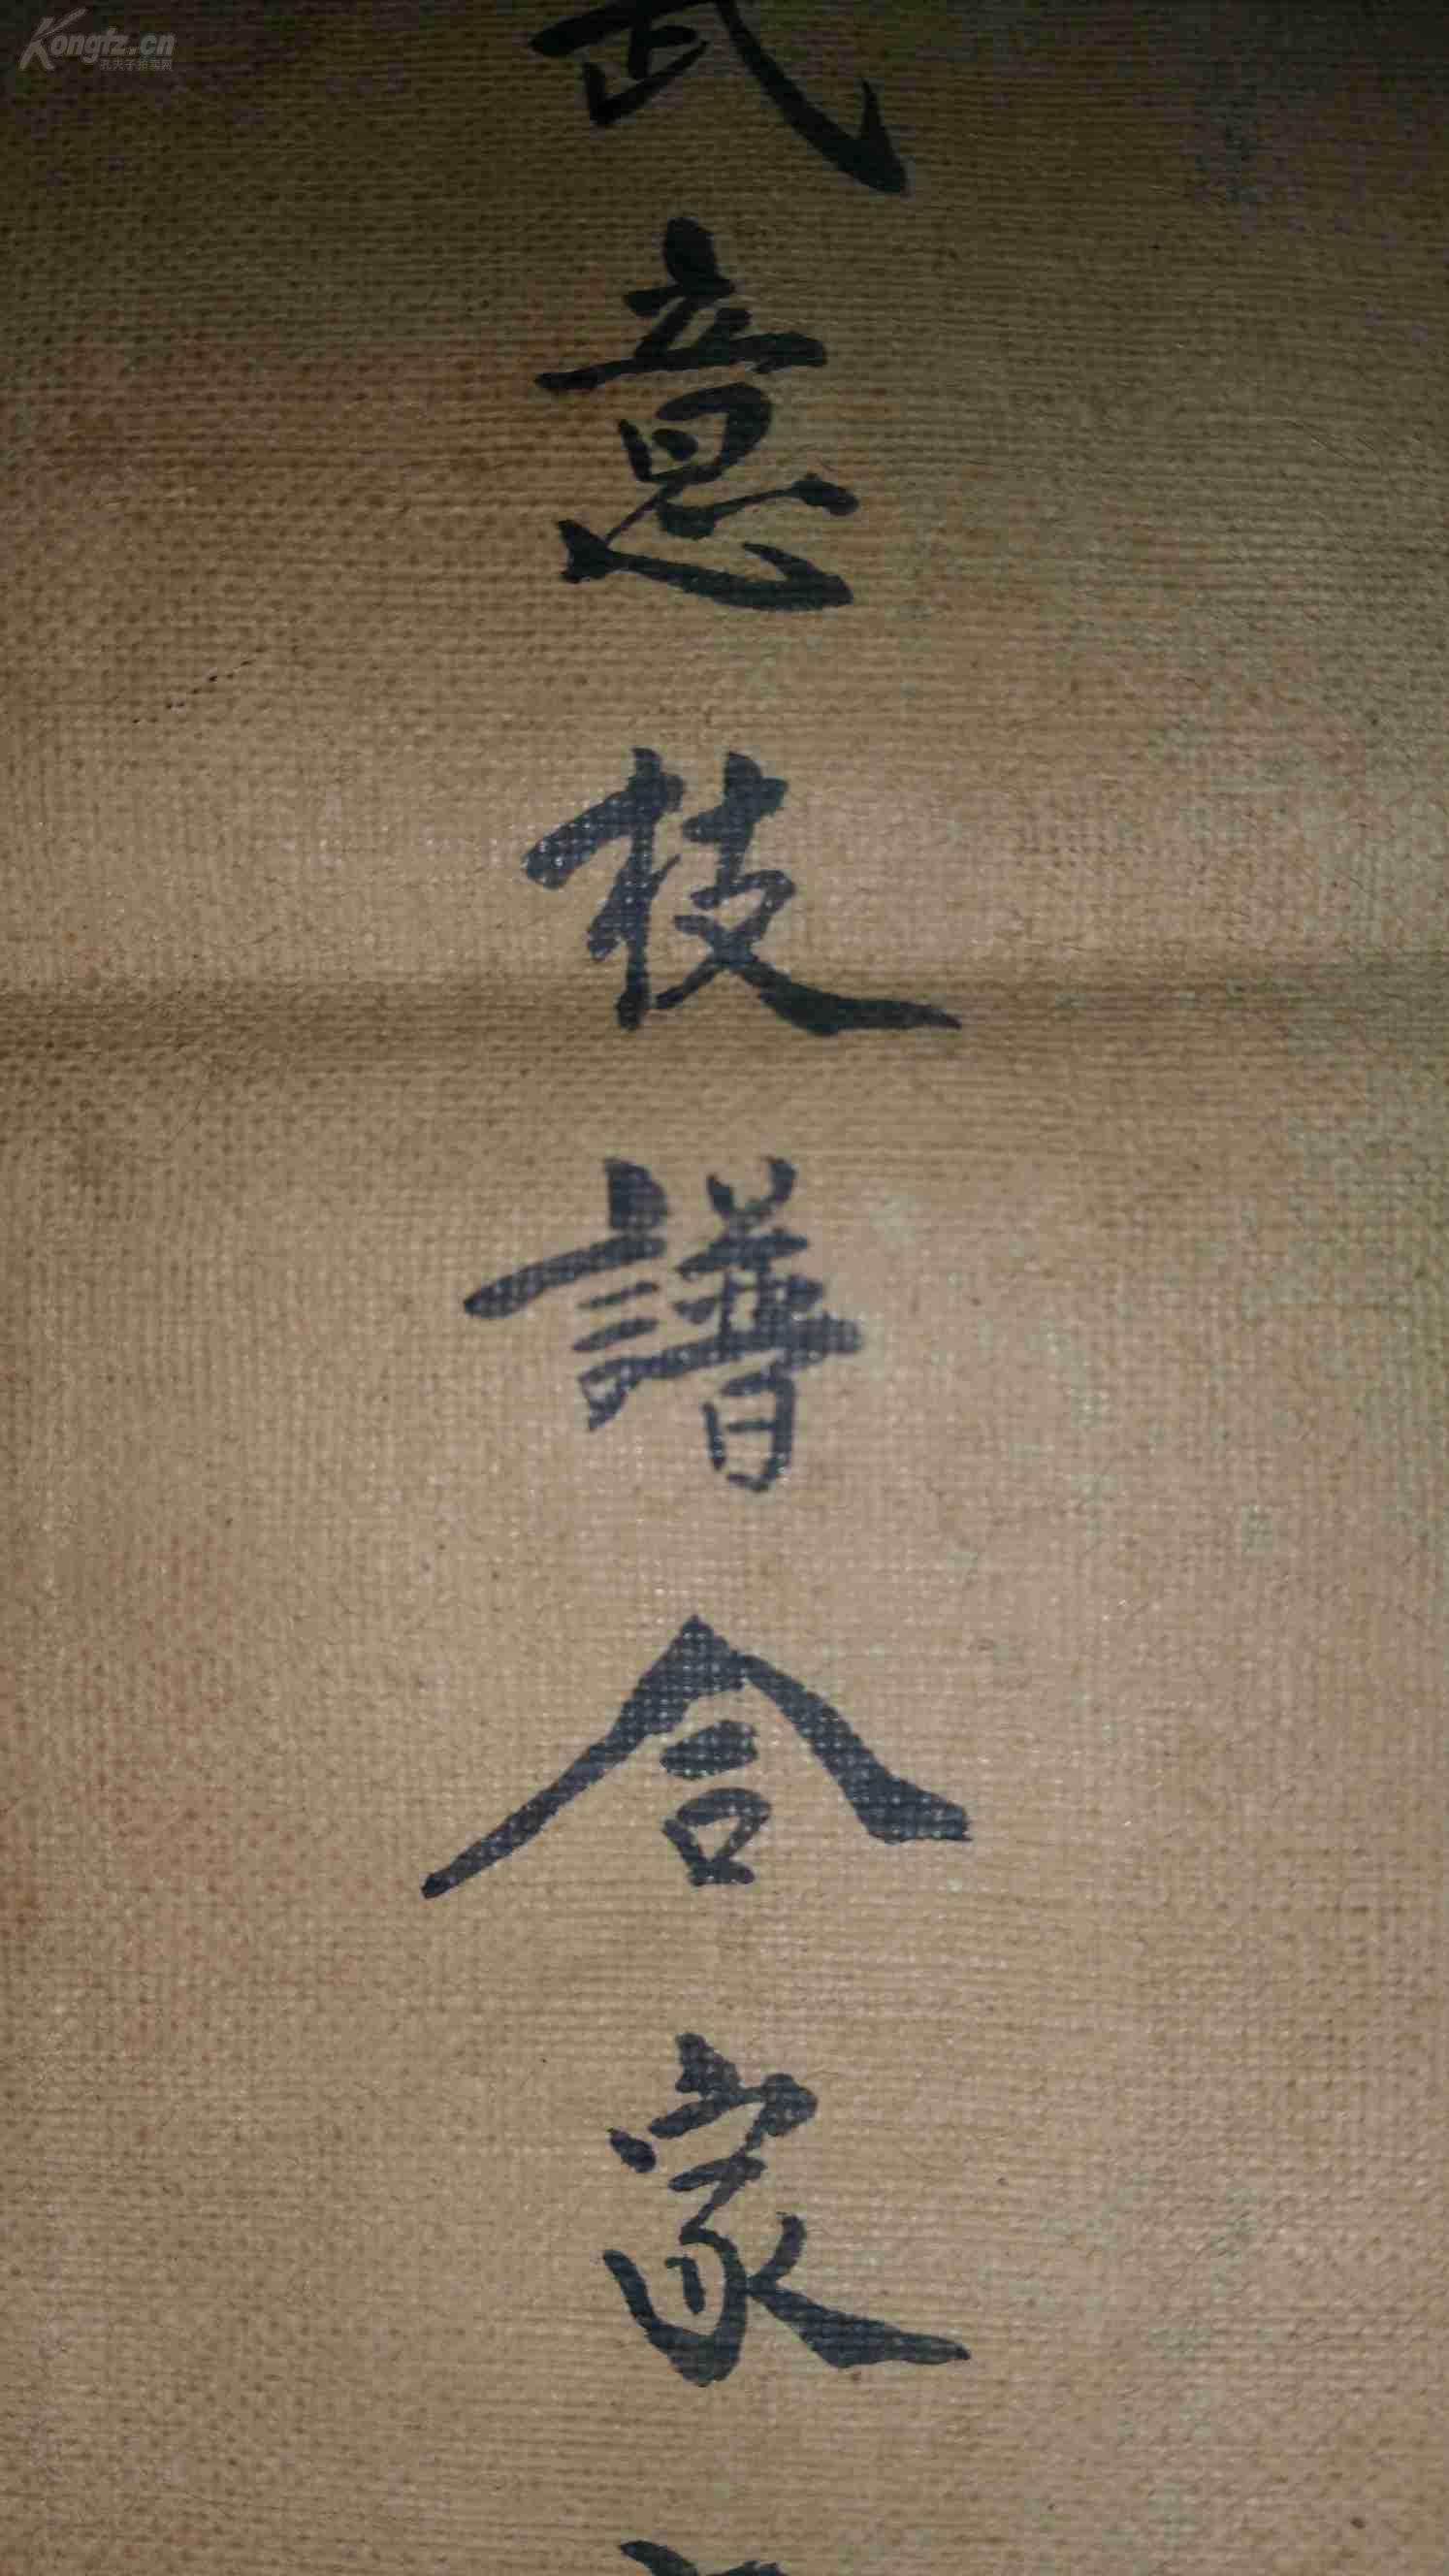 Kongfz.cn
孔夫子拍卖网
武意枝譜合家